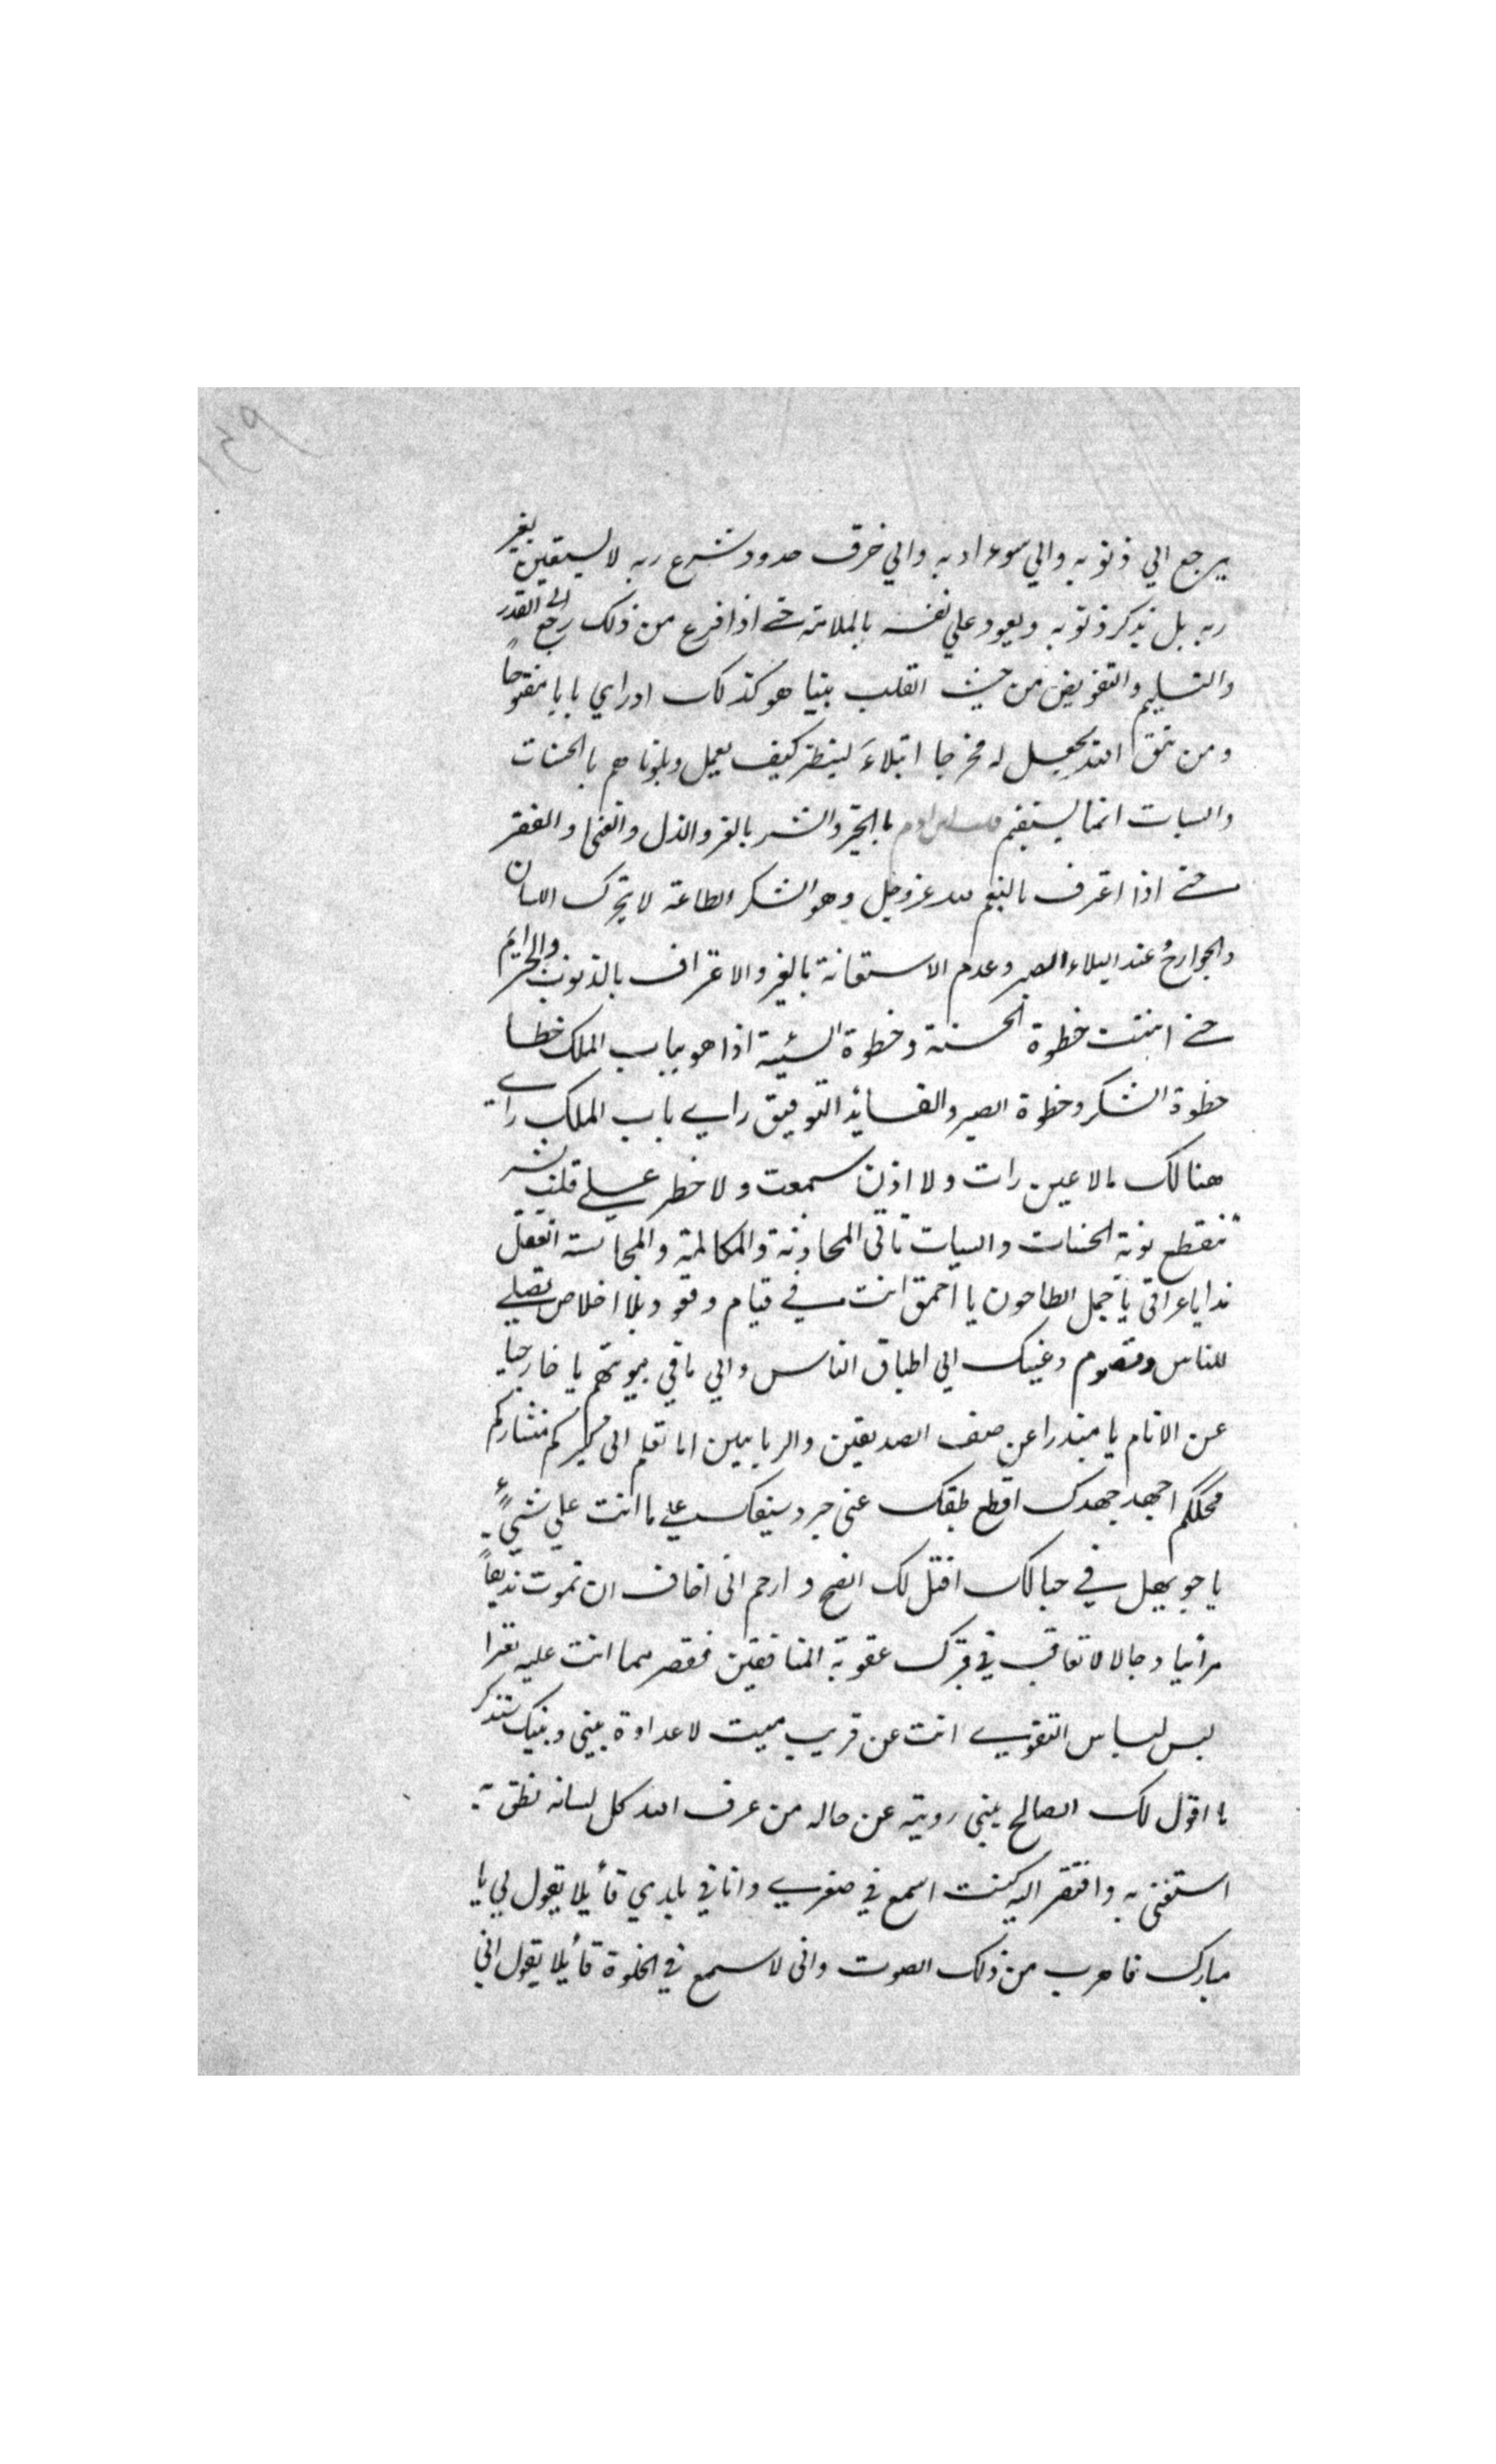 ١٣٩
يرجع الي ذنوبه والي سوء ادبه والي خرق حدود شرع ربه لا يستعين بغير
ربه بل يذكر ذنوبه ويعود علي نفسه بالملامة حتى اذا فرع من ذلك رجع الى القدر
والتسليم والتفويض من حيث القلب بينا هو كذلك اذ راي بابا مفتوحاً
ومن يتق الله يجعل له مخرجا ابتلاءَ لينظر كيف يعمل وبلوناهم بالحسنات
والسيات انما يستقيم قلب ابن ادم بالخير والشر بالعز والذل والغنى والفقر
حتى اذا اعترف بالنعم لله عزوجل وهو الشكر الطاعة لا يتحرك اللسان
والجوارح وعند البلاء الصبر وعدم الاستعانة بالغير والاعتراف بالذنوب والجرايم
حتى انتهت خطوة الحسنة وخطوة السيئة اذا هو بباب الملك خطا
خطوة الشكر وخطوة الصبر والقايد التوفيق راي باب الملك راي
هنالك ما لا عين رات ولا اذن سمعت ولا خطر على قلب بشر
تنقطع نوبة الحسنات والسيات تاتي المحادثة والمكالمة والمجالسة اتعقل
ندا يا عراقي يا جمل الطاحون يا احمق انت في قيام وقعود بلا اخلاص تصلي
للناس وتصوم وعينك الي اطباق الناس والي ما في بيوتهم يا خارجيا
عن الانام يا مبتدرا عن صف الصديقين والربانيين اما تعلم انى كيركم منشاركم
محككم اجهد جهدك اقطع طبقك عنى جرد سيفك على ما انت علي شيءٍ
يا جويهل في حبالك افتل لك انصح وارحم انى اخاف ان تموت زنديقاً
مرائيا دجالا لا تعاقب في قبرك عقوبة المنافقين فقصر مما انت عليه تعرا
لبس لباس التقوي انت عن قريب ميت لا عداوة بيني وبينك ستذكر
ما اقول لك الصالح يبني رويته عن حاله من عرف الله كل لسانه نطق به
استغنى به وافتقر اليه كنت اسمع في صغري وانا في بلدي قائلا يقول لي يا
مبارك فاهرب من ذلك الصوت وانى لاسمع في الخلوة قائلا يقول اني